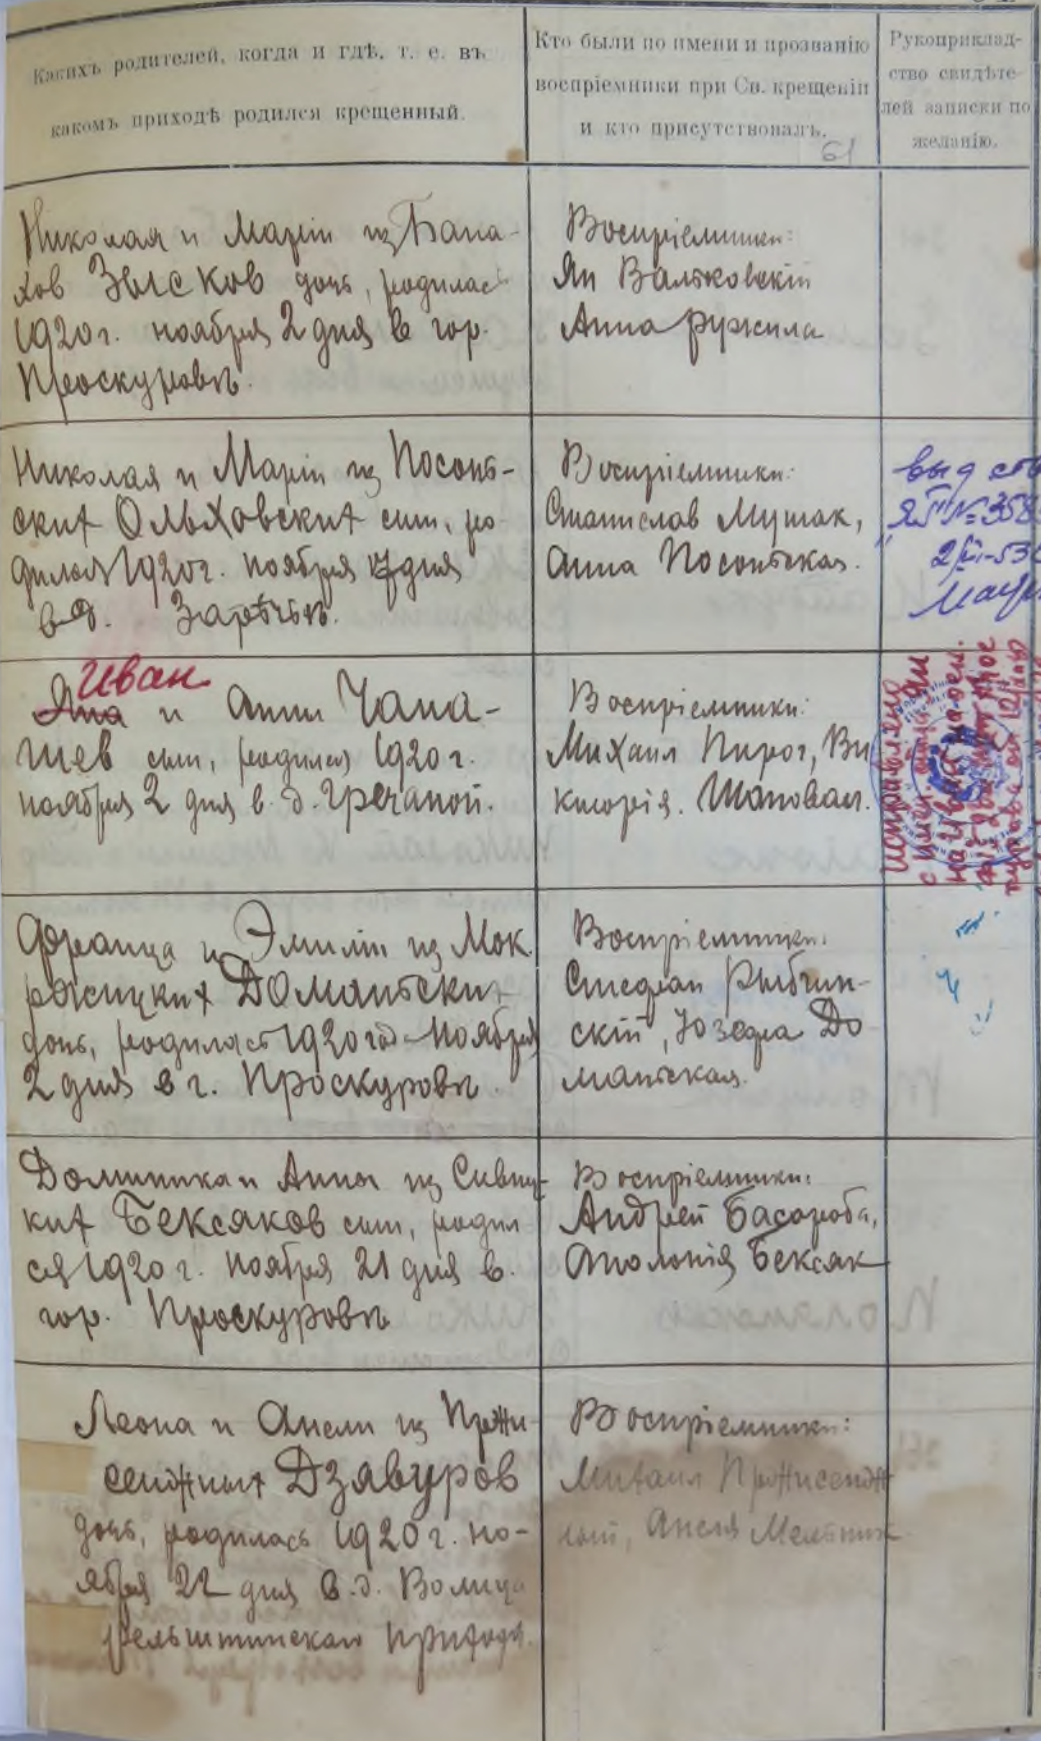 Какихъ родителей, когда и гдѣ, т. е. въ
какомъ приходѣ родился крещенный.
Кто были по имени и прозванію
воспріемники при Св. крещеніи
и кто присутствовалъ.
61
Рукоприклад-
ство свидѣте-
лей записки по
желанію.
Николая и Маріи из Бана-
хов Зысков дочь, родилась
1920 г. ноября 2 дня в гор.
Проскуровѣ.
Воспріемники:
Ян Вальковскій
Анна Ружила
Николая и Маріи из Посонь-
ских Ольховских сын, ро-
дился 1920 г. ноября 7 дня
в д. Зарѣчьѣ.
Воспріемники:
Станислав Мушак,
Анна Посоньская.
выд
ЯП № 358
2
Иван
Яна и Анны Чапа-
шев сын, родился 1920 г.
ноября 2 дня в. д. Гречаной.
Воспріемники:
Михаил Пирог, Ви
кторія. Шаповал.
исправлено
с имени отца Ян
на Иван на осн.
Франца и Эмиліи из Мок
ржицких Домантских
дочь, родилась 1920 год ноября
2 дня в г. Проскуровѣ.
Воспріемники:
Стефан Рыбчин-
скій, Юзефа До
мантская.
Доминика и Анны из Сивиц-
ких Бексяков сын, родил
ся 1920 г. ноября 21 дня в.
гор. Проскуровѣ
Воспріемники:
Андрей Басороба,
Аполонія Бексяк
Леона и Анели из Пржи
сенжных Дзявуров
дочь, родилась 1920 г. но-
ября 22 дня в. д. Волица
фельштинскаго прихода.
Воспріемники:
Михаил Пржисенж
ный, Анеля Мельник